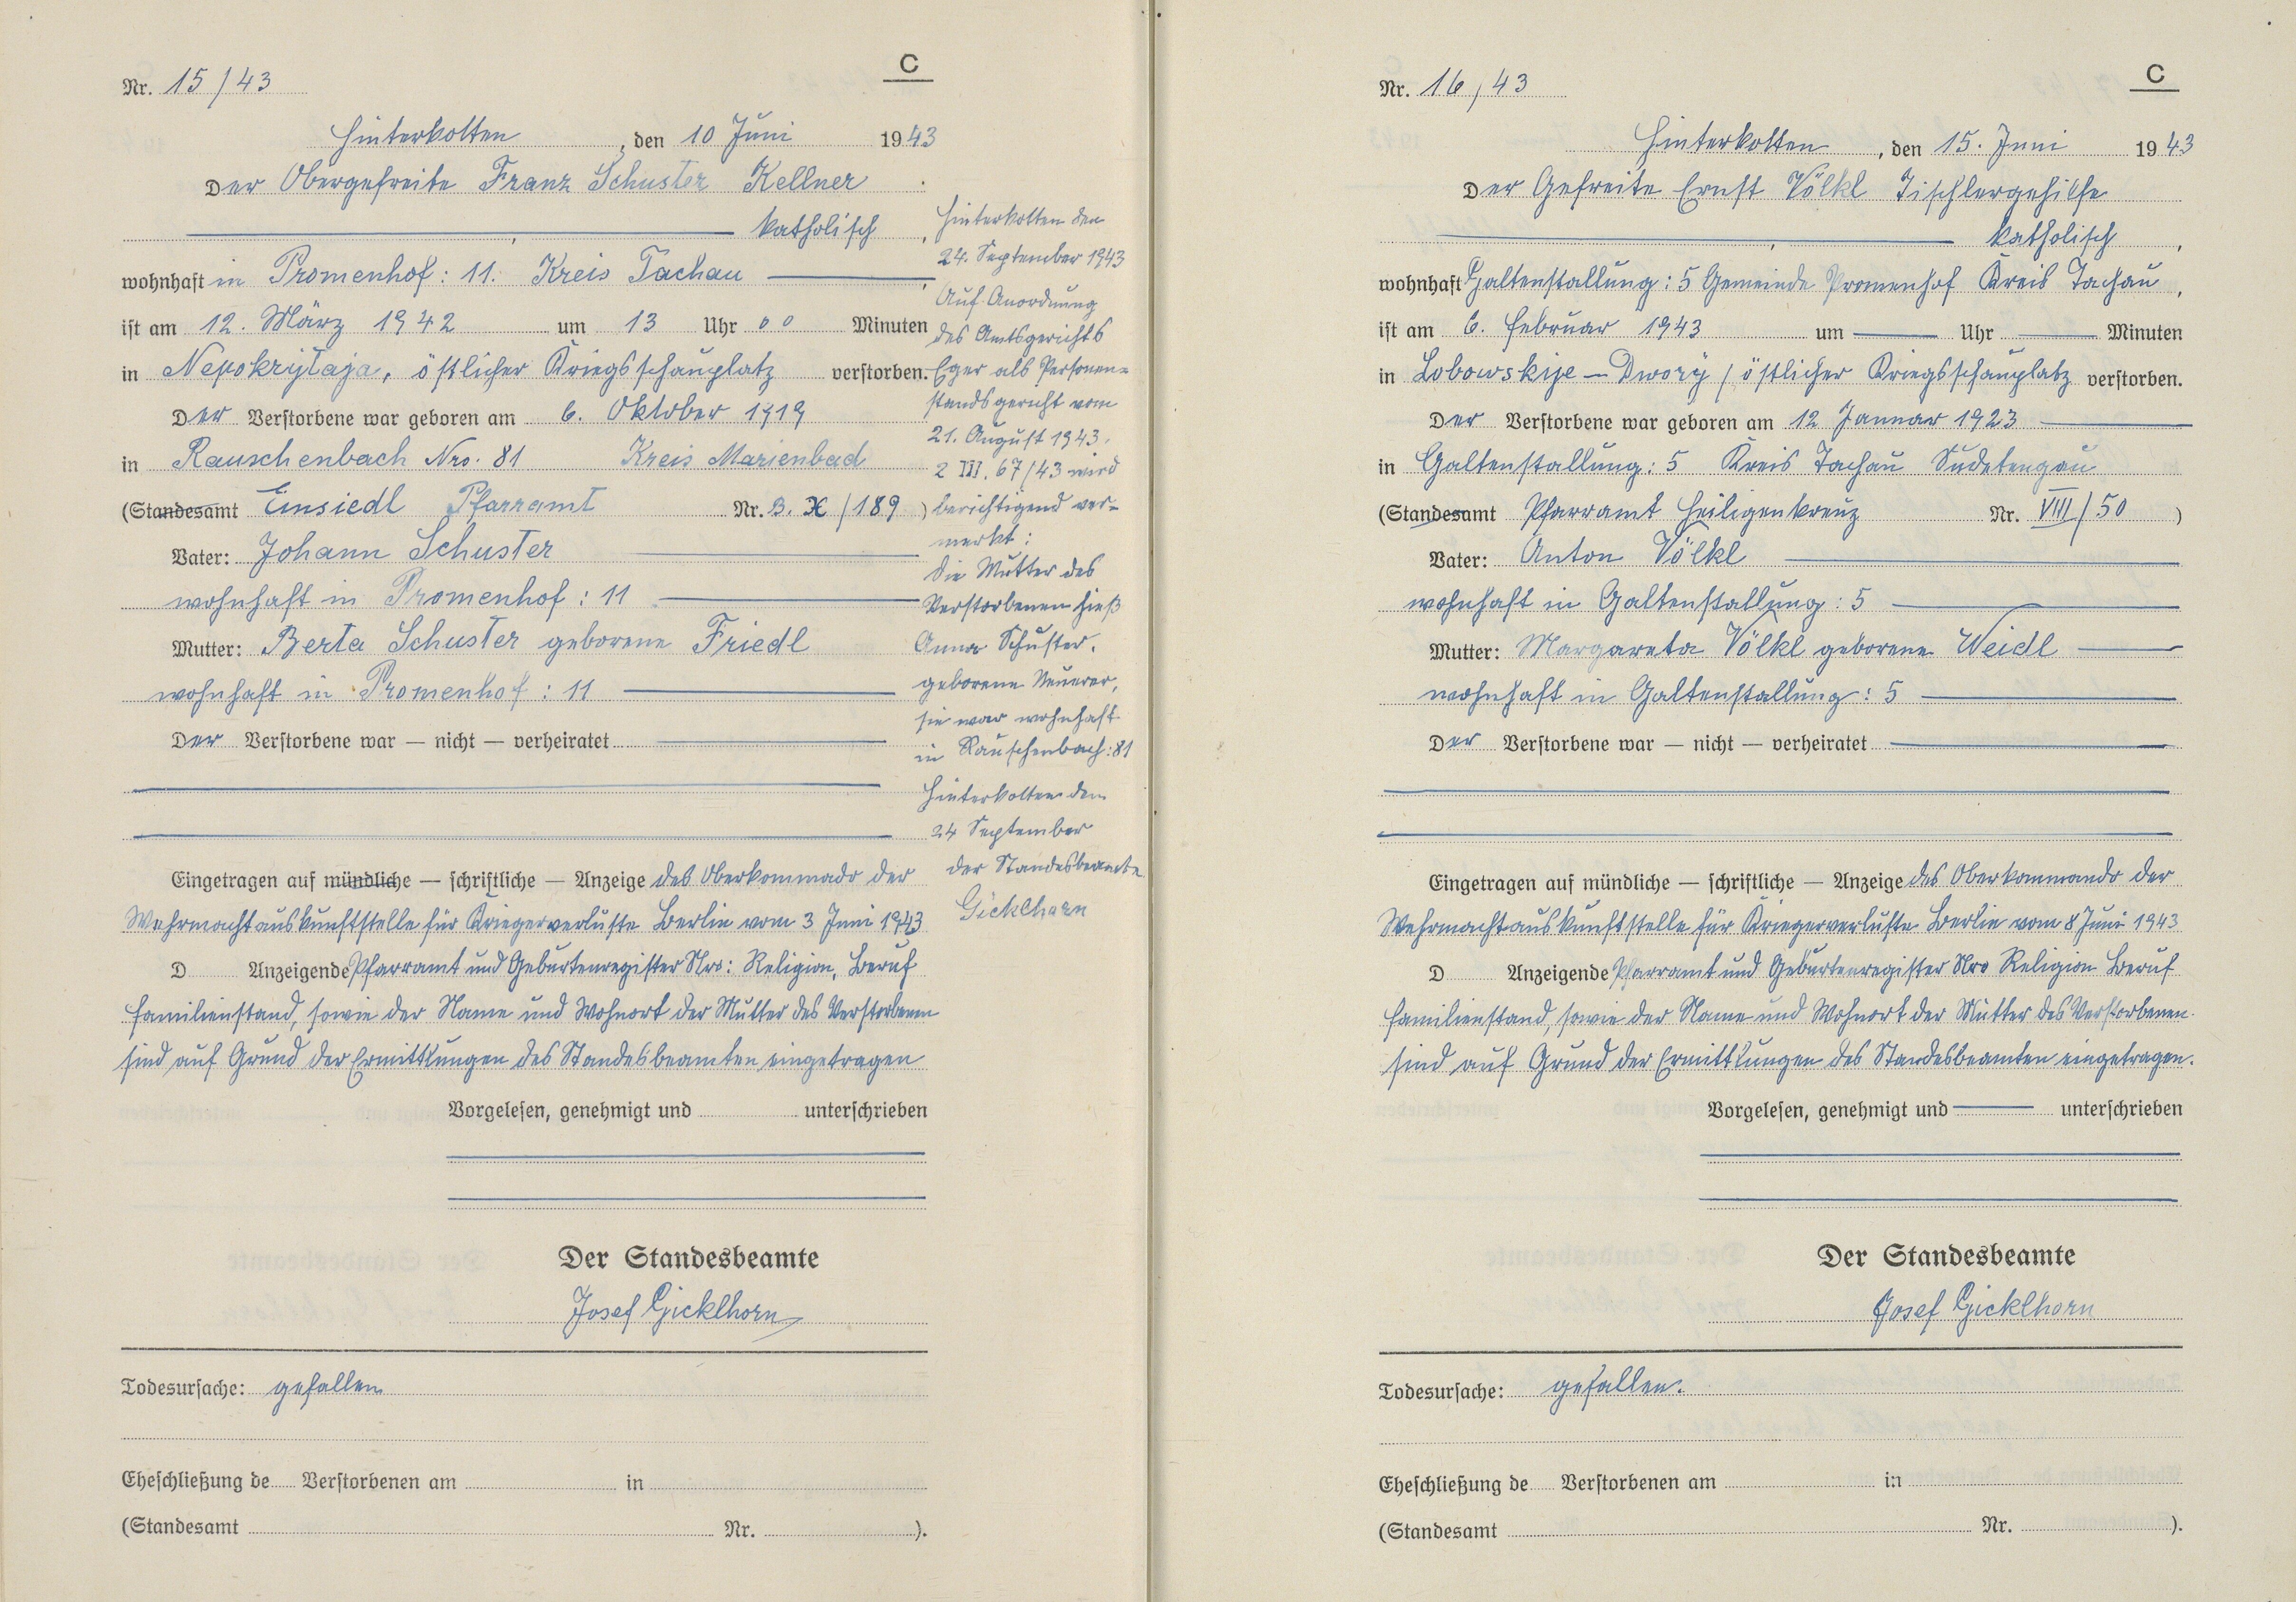 C
Nr. 15/43
Hinterkotten, den 10 Juni 1943
Der Obergefreite Franz Schuster Kellner
katholisch,
wohnhaft in Promenhof: 11. Kreis Tachau
ist am 12. März 1942 um 13 Uhr 00 Minuten
in Nepokrijtaja, östlicher Kriegsschauplatz verstorben.
Der Verstorbene war geboren am 6. Oktober 1919
in Rauschenbach Nro. 81 Kreis Marienbad
(Standesamt Einsiedl Pfarramt Nr. B. X/189)
Vater: Johann Schuster
wohnhaft in Promenhof: 11
Mutter: Berta Schuster geborene Friedl
wohnhaft in Promenhof: 11
Der Verstorbene war — nicht — verheiratet
Eingetragen auf mündliche — schriftliche — Anzeige des Oberkommado der
Wehrmachtauskunftstelle für Kriegerverluste Berlin vom 3 Juni 1943
D Anzeigende Pfarramt und Geburtenregister Nro: Religion, Beruf
Familienstand, sowie der Name und Wohnort der Mutter des Verstorbenen
sind auf Grund der Ermittlungen des Standesbeamten eingetragen
Vorgelesen, genehmigt und unterschrieben
Der Standesbeamte
Josef Gicklhorn
Todesursache: gefallen
Eheschließung de Verstorbenen am in
(Standesamt Nr. ).
Hinterkotten den
24. September 1943
Auf Anordnung
des Amtsgerichts
Eger als Personen=
standsgericht vom
21. August 1943.
2 III. 67/43 wird
berichtigend ver=
merkt:
Die Mutter des
Verstorbenen hieß
Anna Schuster,
geborene Neuerer,
sie war wohnhaft
in Rauschenbach: 81
Hinterkotten den
24 September
der Standesbeamte
Gicklhorn
C
Nr. 16/43
Hinterkotten, den 15. Juni 1943
Der Gefreite Ernst Völkl Tischlergehilfe
katholisch,
wohnhaft Galtenstallung: 5 Gemeinde Promenhof Kreis Tachau,
ist am 6. Februar 1943 um Uhr Minuten
in Lobowskije — Dworij / östlicher Kriegsschauplatz verstorben.
Der Verstorbene war geboren am 12 Januar 1923
in Galtenstallung: 5 Kreis Tachau Sudetengau
(Standesamt Pfarramt Heiligenkreuz Nr. VIII/50)
Vater: Anton Völkl
wohnhaft in Galtenstallung: 5
Mutter: Margareta Völkl geborene Weidl
wohnhaft in Galtenstallung: 5
Der Verstorbene war — nicht — verheiratet
Eingetragen auf mündliche — schriftliche — Anzeige des Oberkommando der
Wehrmachtauskunftstelle für Kriegerverluste Berlin vom 8 Juni 1943
D Anzeigende Pfarramt und Geburtenregister Nro Religion Beruf
Familienstand, sowie der Name und Wohnort der Mutter des Verstorbenen
sind auf Grund der Ermittlungen des Standesbeamten eingetragen.
Vorgelesen, genehmigt und unterschrieben
Der Standesbeamte
Josef Gicklhorn
Todesursache: gefallen.
Eheschließung de Verstorbenen am in
(Standesamt Nr. ).